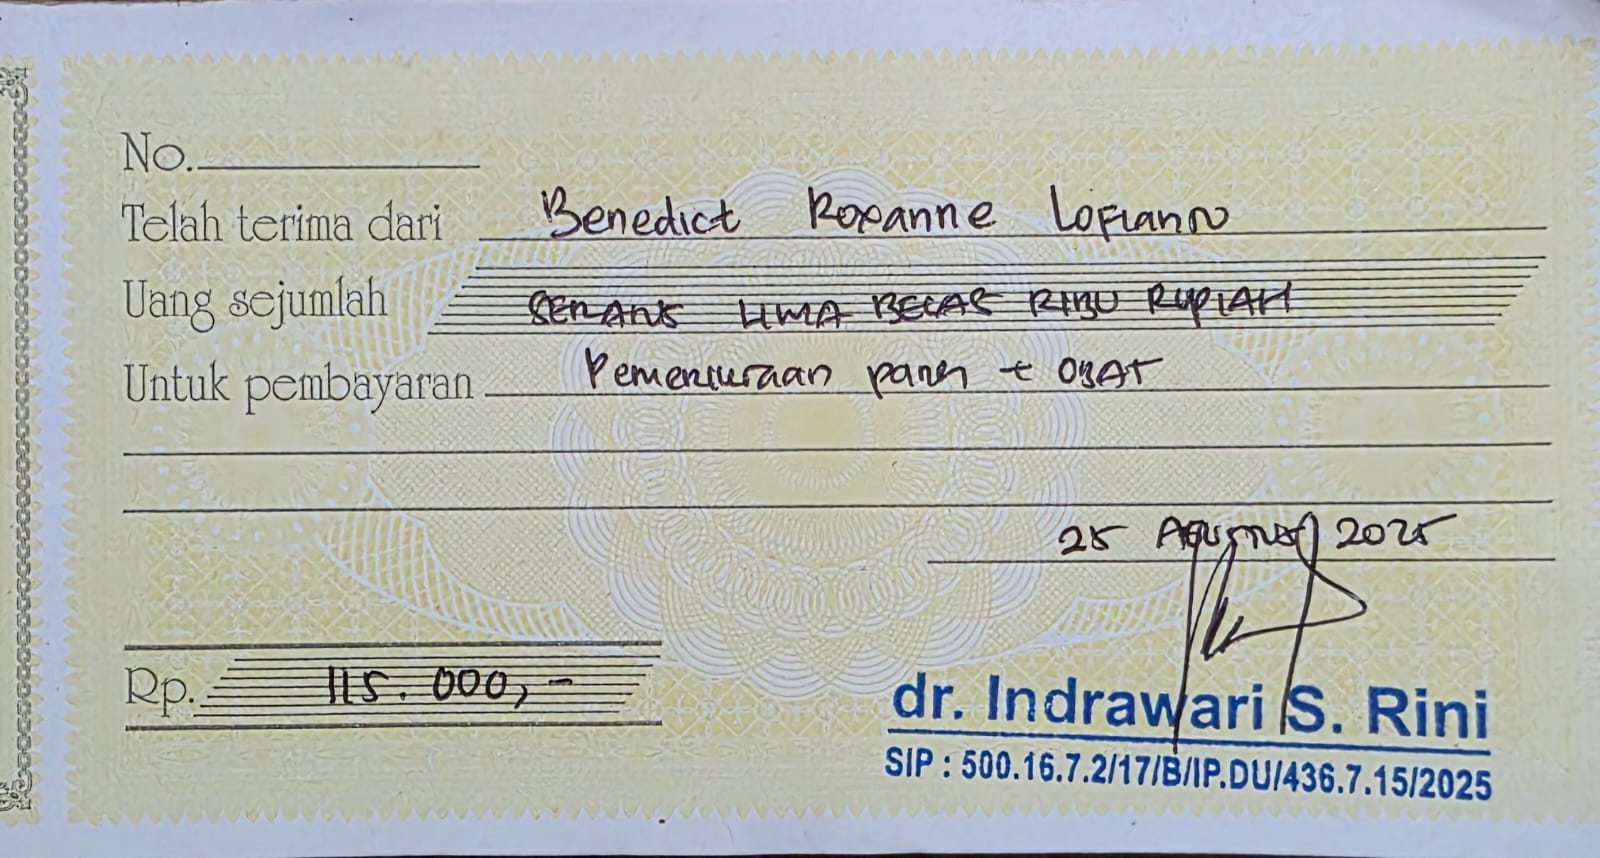 No.
Telah terima dari Benedict Roxanne Lofianno
Uang sejumlah SERATUS LIMA BELAS RIBU RUPIAH
Untuk pembayaran Pemeriksaan pasien + OBAT
25 Agustus 2025
Rp. 115.000,-
dr. Indrawari S. Rini
SIP : 500.16.7.2/17/B/IP.DU/436.7.15/2025